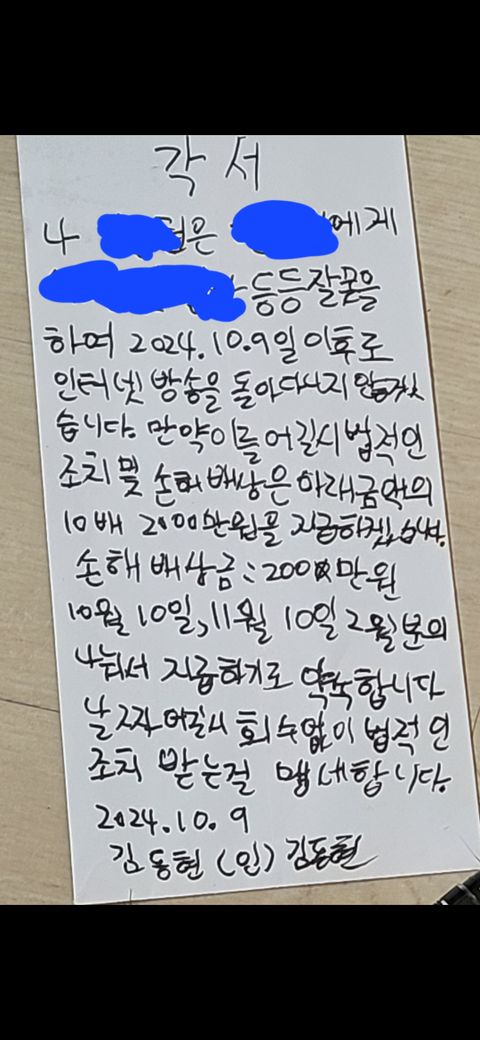 각 서
나 현은 에게
등등 잘못을
하여 2024.10.9일 이후로
인터넷 방송을 돌아다니지 않겠
습니다. 만약 이를 어길시 법적인
조치 및 손해배상은 아래금액의
10배 2000만원을 지급하겠습니다.
손해 배상금: 200만원
10월 10일, 11월 10일 2월분의
나눠서 지급하기로 약속합니다
날짜 어길시 회수없이 법적인
조치 받는걸 맹세합니다.
2024.10.9
김동현 (인) 김동현